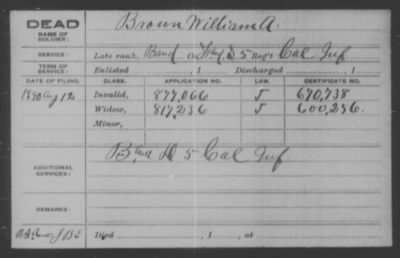 DEAD
NAME OF SOLDIER:
Brown William A.
SERVICE:
Late rank, Band Regt Cal Inf
TERM OF SERVICE:
Enlisted , 1 Discharged , 1
DATE OF FILING.
CLASS.
APPLICATION NO.
LAW.
CERTIFICATE NO.
1890 Aug 12
Invalid,
877,066
J
670,738
Widow,
817,236
J
600,256
Minor,
ADDITIONAL SERVICES:
D 5 Cal Inf
REMARKS:
Died , 1 , at